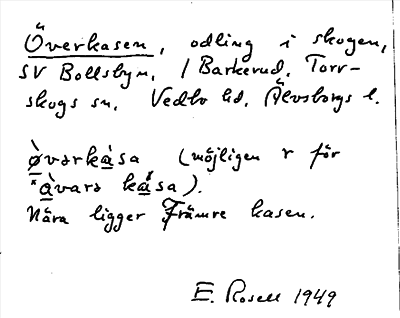 Överkasen, odling i skogen,
SV Bollsbyn, 1 Barkerud, Torr-
skogs sn, Vedbo hd, Älvsborgs l.
ø̀vərkàsa (möjligen r för
*àvarə kåsa).
Nära ligger Främre kasen.
E. Rosell 1949